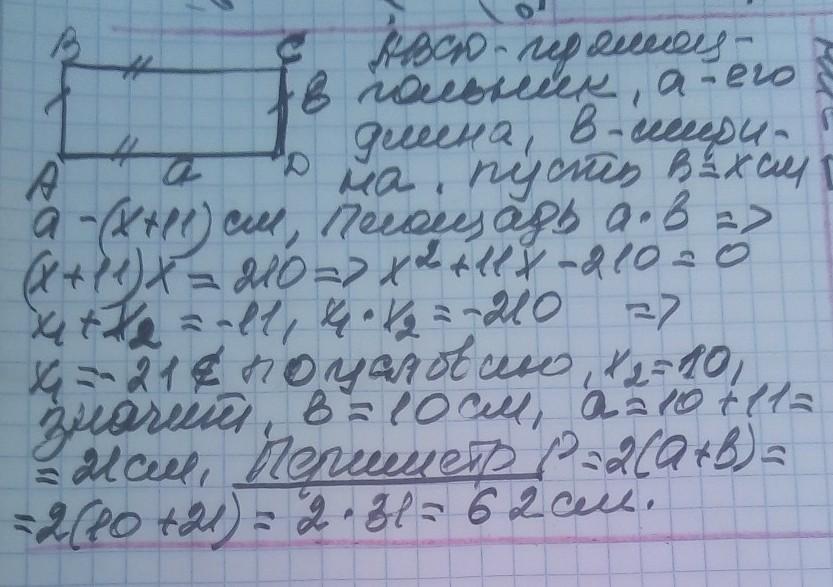 B C ABCD - прямоу-
B гольник, а - его
длина, в - шири-
A a D на. пусть в = x см
a - (x+11) см, Площадь a·в =>
(x+11)x = 210 => x² + 11x - 210 = 0
x₁ + x₂ = -11, x₁·x₂ = -210 =>
x₁ = -21 ∉ по условию, x₂ = 10,
значит, в = 10 см, a = 10 + 11 =
= 21 см, Периметр P = 2(a+в) =
= 2(10 + 21) = 2·31 = 62 см.